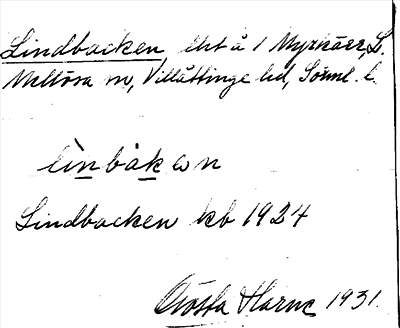 Lindbacken, lht å 1 Myrkärr, L.
Mellösa sn, Villåttinge hd, Söml. l.
lìnbàkən
Lindbacken kb 1924
Gösta Harne 1931.